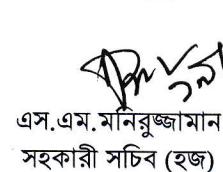 এস.এম.মনিরুজ্জামান
সহকারী সচিব (হজ)